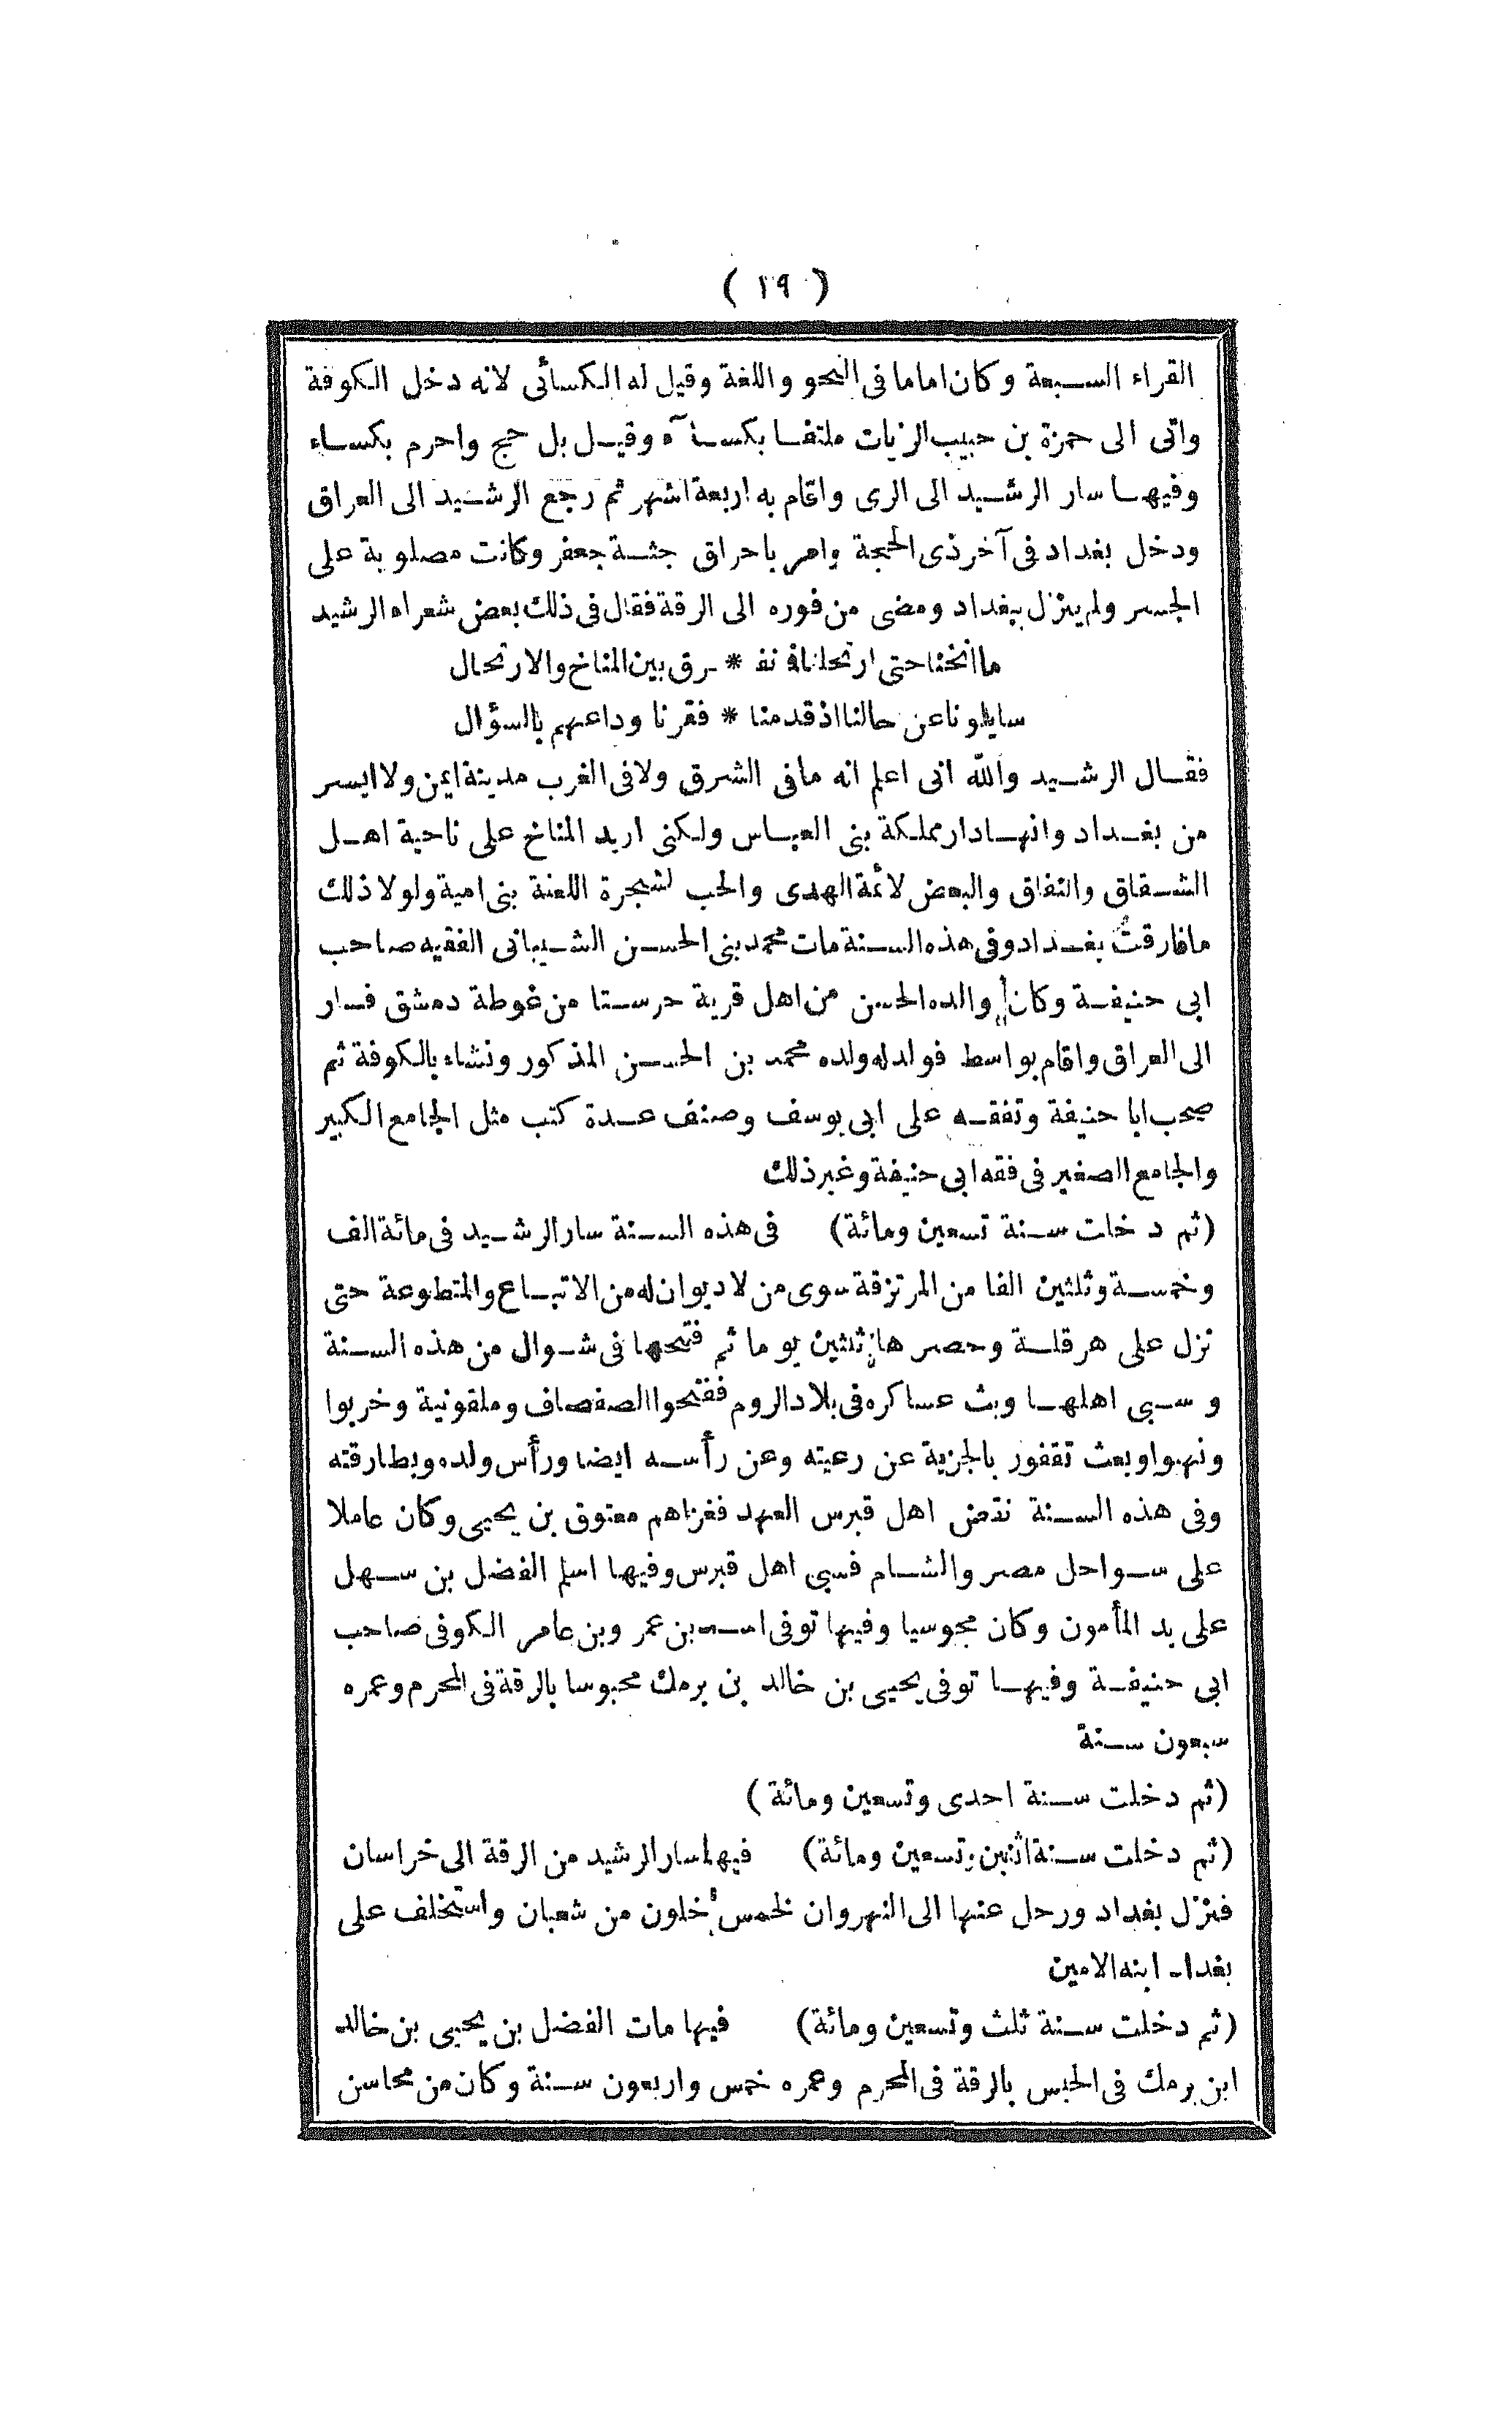 ( ١٩ )
القراء السبعة وكان اماما فى النحو واللغة وقيل له الكسائى لانه دخل الكوفة
واتى الى حمزة بن حبيب الزيات ملتفا بكساء وقيل بل حج واحرم بكساء
وفيها سار الرشيد الى الرى واقام به اربعة اشهر ثم رجع الرشيد الى العراق
ودخل بغداد فى آخر ذى الحجة وامر باحراق جثة جعفر وكانت مصلوبة على
الجسر ولم ينزل ببغداد ومضى من فوره الى الرقة فقال فى ذلك بعض شعراء الرشيد
ما انخنا حتى ارتحلنا فما نفـ * ـرق بين المناخ والارتحال
سايلونا عن حالنا اذ قدمنا * فقرنا وداعهم بالسؤال
فقال الرشيد والله انى اعلم انه ما فى الشرق ولا فى الغرب مدينة ايمن ولا ايسر
من بغداد وانها دار مملكة بنى العباس ولكنى اريد المناخ على ناحية اهل
الشقاق والنفاق والبعض لائمة الهدى والحب لشجرة اللعنة بنى امية ولولا ذلك
ما فارقت بغداد وفى هذه السنة مات محمد بنى الحسن الشيبانى الفقيه صاحب
ابى حنيفة وكان والده الحسن من اهل قرية حرستا من غوطة دمشق فسار
الى العراق واقام بواسط فولد له ولده محمد بن الحسن المذكور ونشاء بالكوفة ثم
صحب ابا حنيفة وتفقه على ابى يوسف وصنف عدة كتب مثل الجامع الكبير
والجامع الصغير فى فقه ابى حنيفة وغير ذلك
(ثم دخلت سنة تسعين ومائة) فى هذه السنة سار الرشيد فى مائة الف
وخمسة وثلثين الفا من المرتزقة سوى من لا ديوان له من الاتباع والمتطوعة حتى
نزل على هرقلة وحصرها ثلثين يوما ثم فتحها فى شوال من هذه السنة
وسبى اهلها وبث عساكره فى بلاد الروم ففتحوا الصفصاف وملقونية وخربوا
ونهبوا وبعث تقفور بالجزية عن رعيته وعن رأسه ايضا ورأس ولده وبطارقته
وفى هذه السنة نقض اهل قبرس العهد فغزاهم معتوق بن يحيى وكان عاملا
على سواحل مصر والشام فسبى اهل قبرس وفيها اسلم الفضل بن سهل
على يد المأمون وكان مجوسيا وفيها توفى اسد بن عمر وبن عامر الكوفى صاحب
ابى حنيفة وفيها توفى يحيى بن خالد بن برمك محبوسا بالرقة فى المحرم وعمره
سبعون سنة
(ثم دخلت سنة احدى وتسعين ومائة)
(ثم دخلت سنة اثنين وتسعين ومائة) فيها سار الرشيد من الرقة الى خراسان
فنزل بغداد ورحل عنها الى النهروان لخمس خلون من شعبان واستخلف على
بغداد ابنه الامين
(ثم دخلت سنة ثلث وتسعين ومائة) فيها مات الفضل بن يحيى بن خالد
ابن برمك فى الحبس بالرقة فى المحرم وعمره خمس واربعون سنة وكان من محاسن